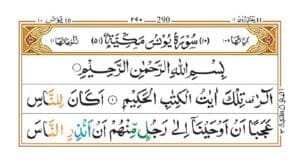 يونس ١٠ ٢٩٠ 290 يعتذرون ١١
سُوْرَةُ يُوْنُسَ مَكِّيَّةٌ (٥١) (١٠)
بِسْمِ اللهِ الرَّحْمٰنِ الرَّحِيْمِ
الٓرٰ تِلْكَ اٰيٰتُ الْكِتٰبِ الْحَكِيْمِ ۝ اَكَانَ لِلنَّاسِ
عَجَبًا اَنْ اَوْحَيْنَآ اِلٰى رَجُلٍ مِّنْهُمْ اَنْ اَنْذِرِ النَّاسَ